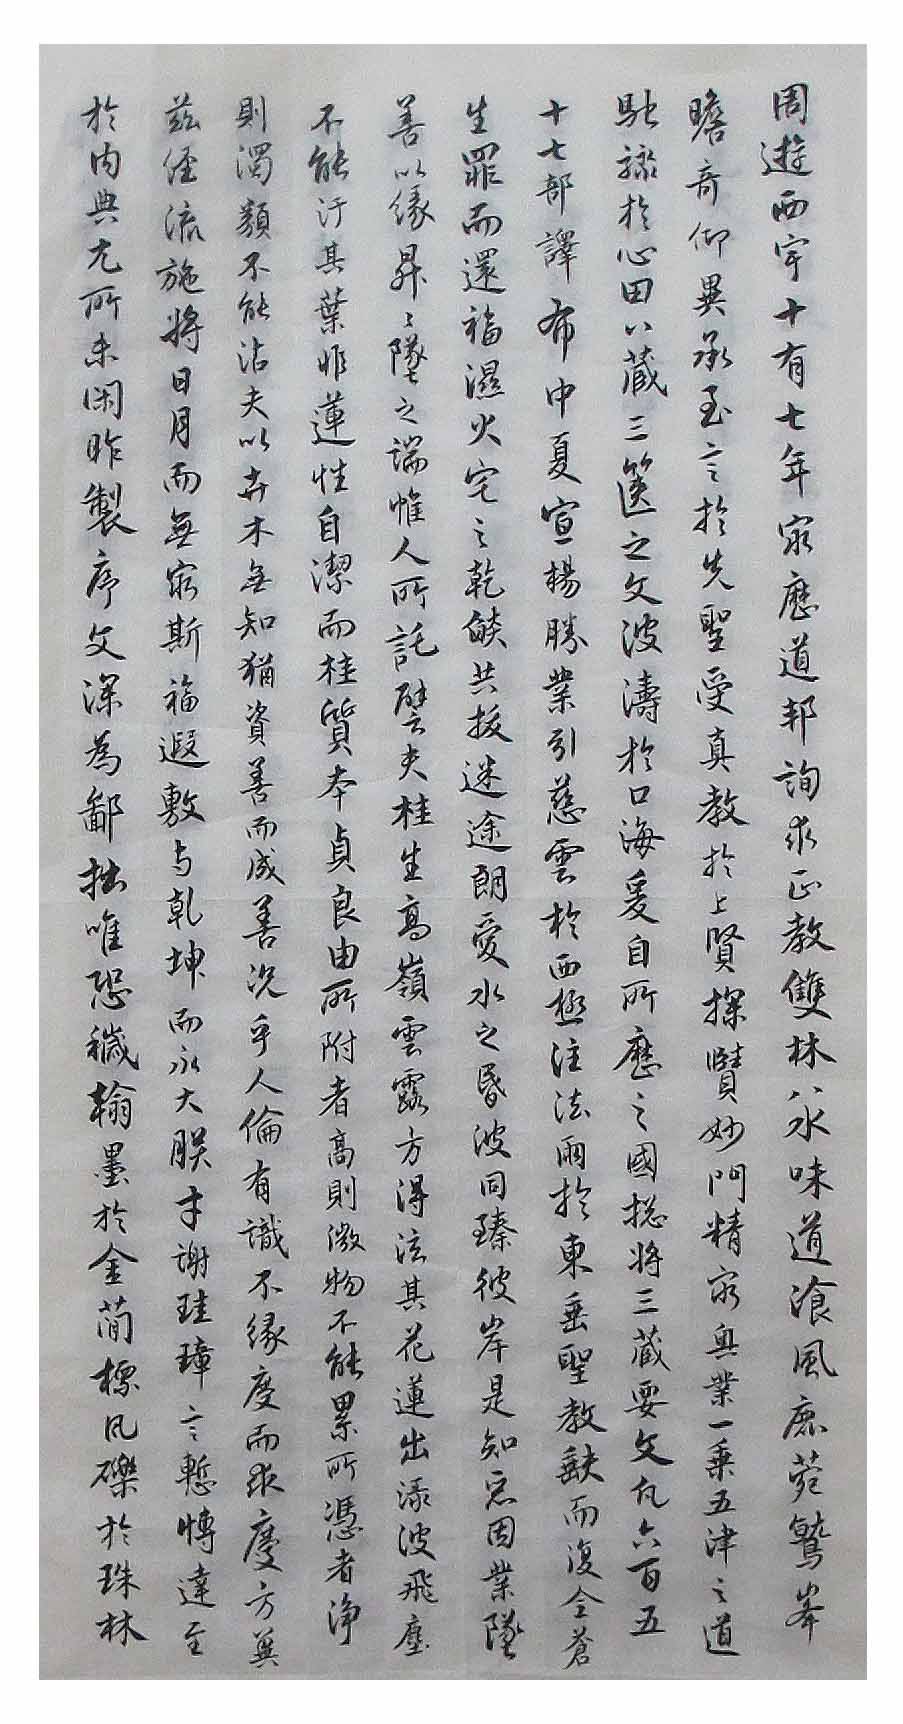 周遊西宇十有七年窮歷道邦詢求正教雙林八水味道湌風鹿菀鷲峯
瞻奇仰異承至言於先聖受真教於上賢探賾妙門精窮奧業一乘五津之道
馳驟於心田八藏三篋之文波濤於口海爰自所歷之國揔將三藏要文凡六百五
十七部譯布中夏宣揚勝業引慈雲於西極注法雨於東垂聖教缺而復全蒼
生罪而還福濕火宅之乾燄共拔迷途朗愛水之昏波同臻彼岸是知惡因業墜
善以緣昇昇墜之端惟人所託譬夫桂生高嶺雲露方得泫其花蓮出淥波飛塵
不能汙其葉非蓮性自潔而桂質本貞良由所附者高則微物不能累所憑者淨
則濁類不能沾夫以卉木無知猶資善而成善況乎人倫有識不緣慶而求慶方冀
茲經流施將日月而無窮斯福遐敷与乾坤而永大朕才謝珪璋言慙博達至
於內典尤所未閑昨製序文深為鄙拙唯恐穢翰墨於金簡標瓦礫於珠林